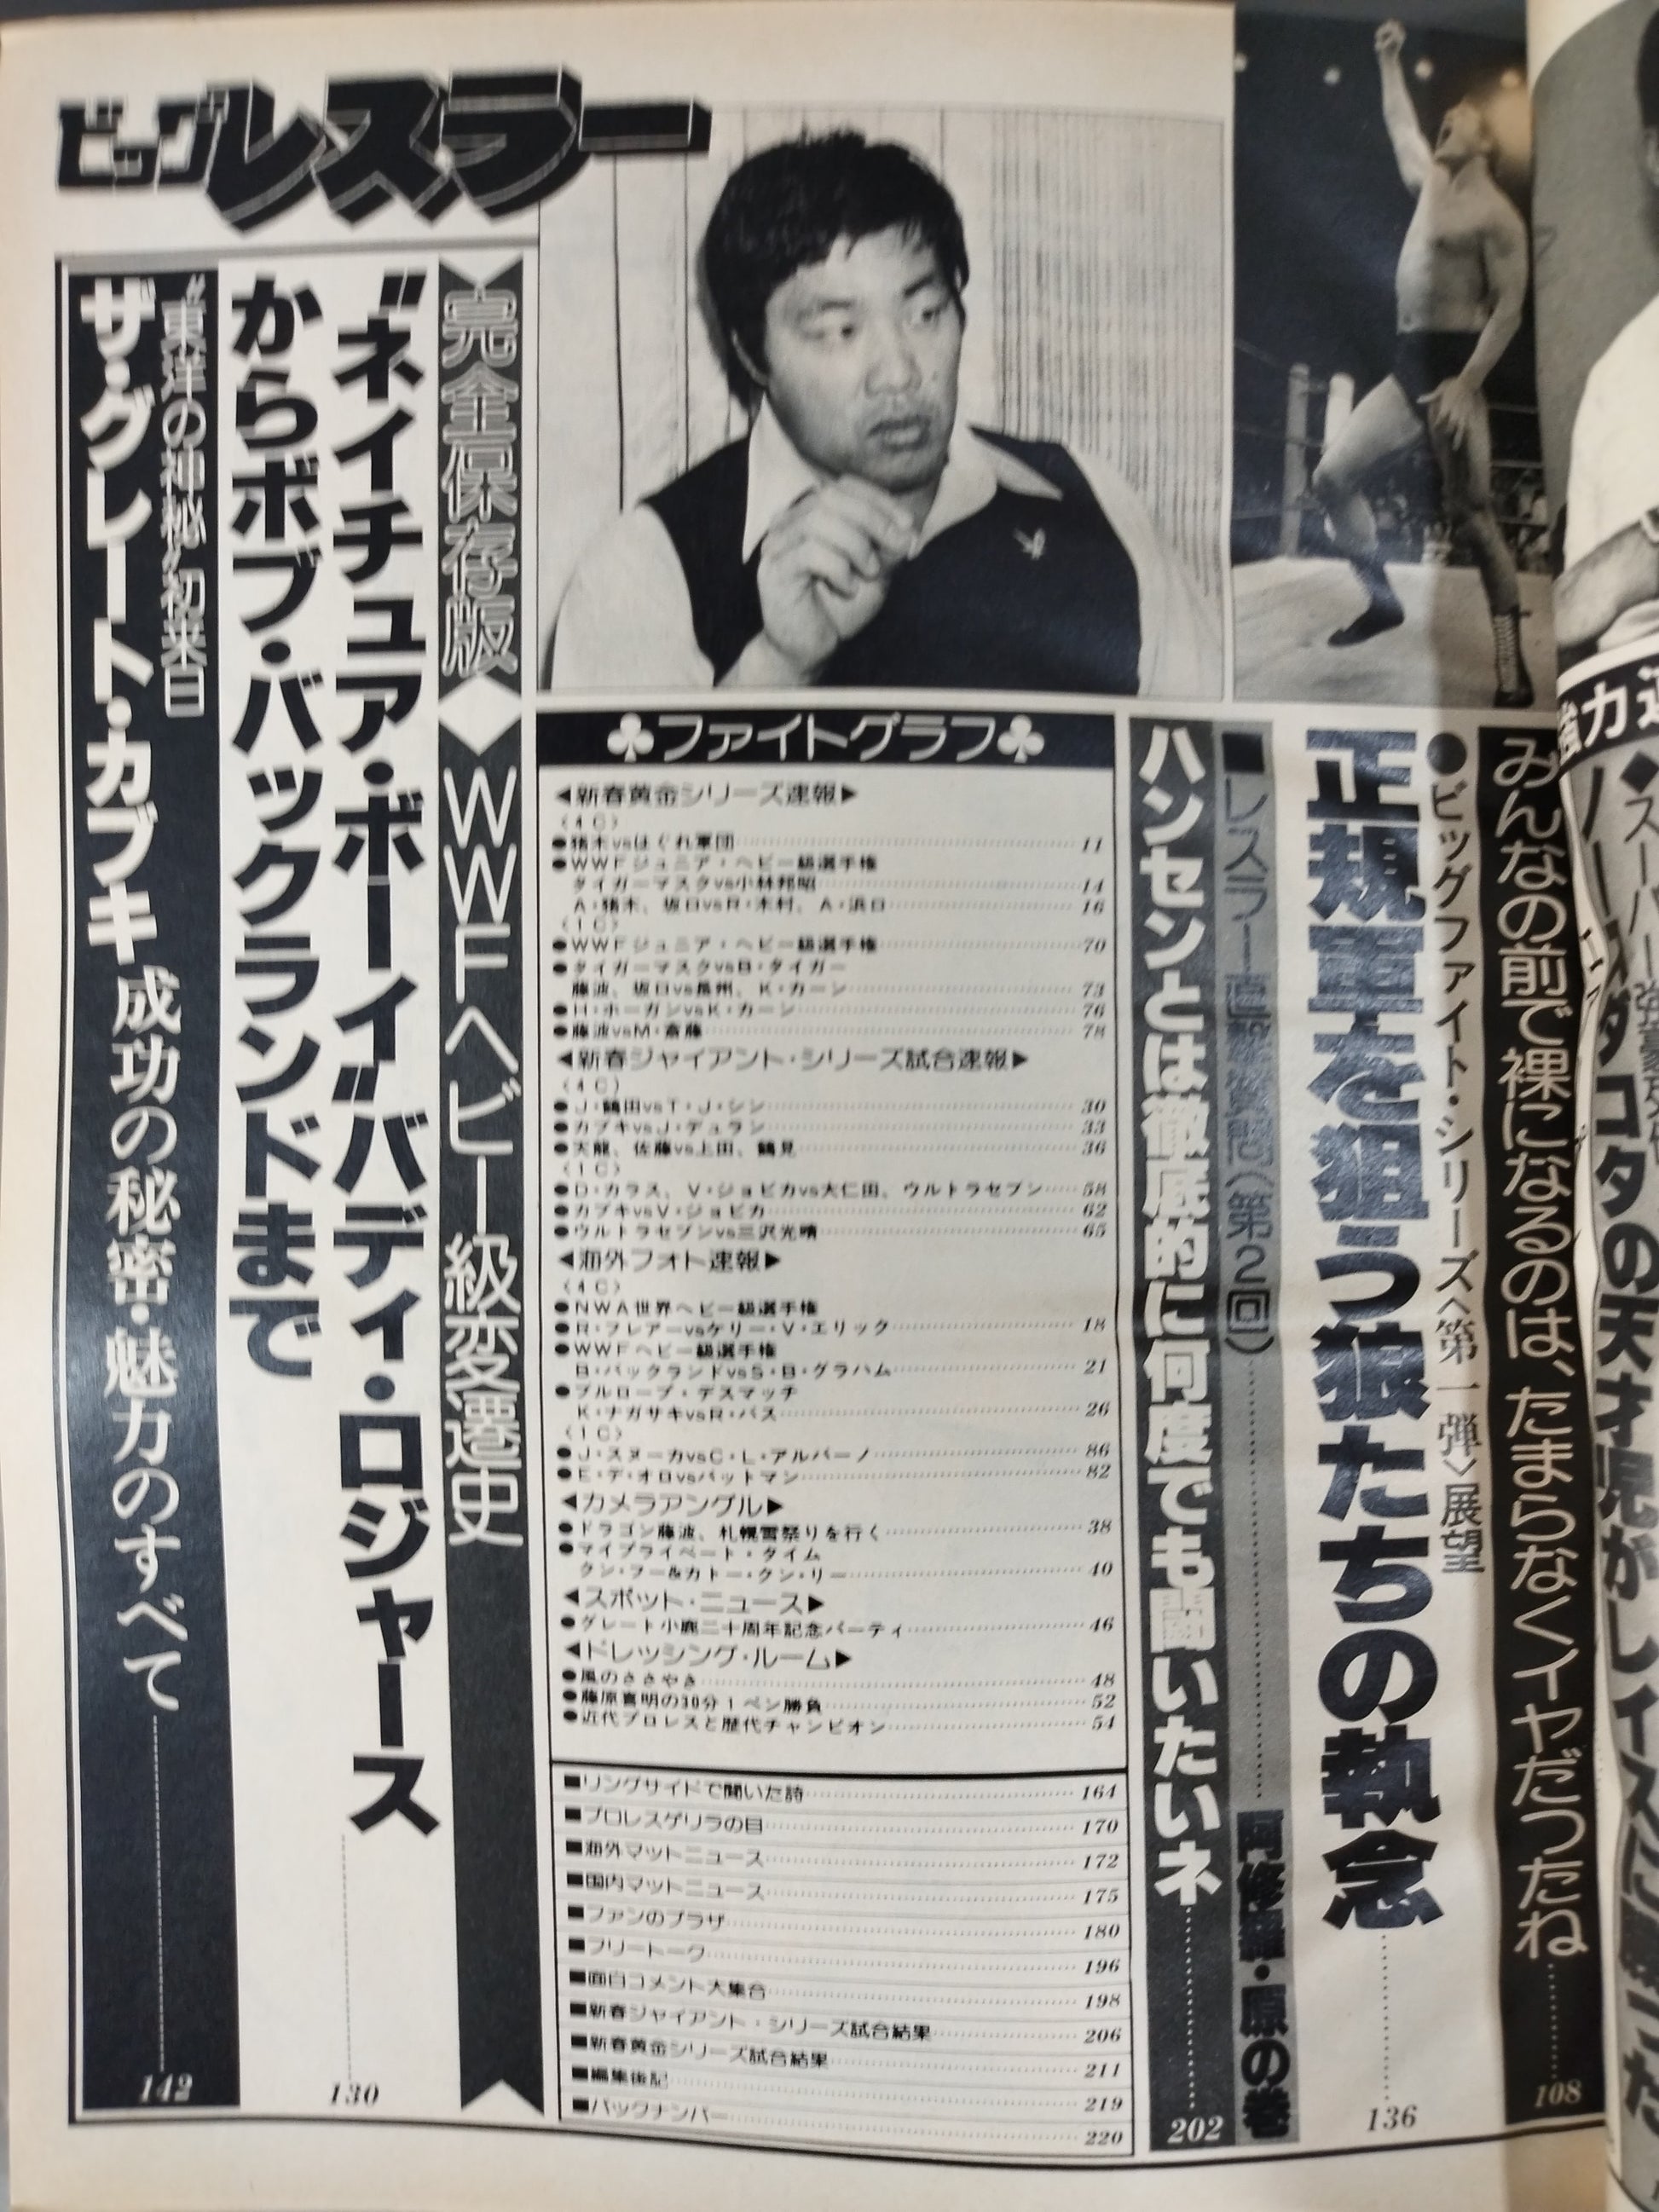 ビッグレスラー
みんなの前で裸になるのは、たまらなくイヤだったね
108
●ビッグファイト・シリーズ〈第一弾〉展望
正規軍を狙う狼たちの執念
136
■レスラー
(第2回)
阿修羅・原の巻
ハンセンとは徹底的に何度でも闘いたいネ
202
完全保存版◆WWFヘビー級変遷史
〝ネイチュア・ボーイ〟バディ・ロジャース
からボブ・バックランドまで
130
〝東洋の神秘〟初来日
ザ・グレート・カブキ成功の秘密・魅力のすべて
142
♣ファイトグラフ♣
◀新春黄金シリーズ速報▶
〈4C〉
●猪木vsはぐれ軍団 11
●WWFジュニア・ヘビー級選手権
タイガーマスクvs小林邦昭 14
A・猪木、坂口vsR・木村、A・浜口 16
〈1C〉
●WWFジュニア・ヘビー級選手権 70
●タイガーマスクvsB・タイガー
藤波、坂口vs長州、K・カーン 73
●H・ホーガンvsK・カーン 76
●藤波vsM・斎藤 78
◀新春ジャイアント・シリーズ試合速報▶
〈4C〉
●J・鶴田vsT・J・シン 30
●カブキvsJ・デュラン 33
●天龍、佐藤vs上田、鶴見 36
〈1C〉
●D・カラス、V・ジョビカvs大仁田、ウルトラセブン 58
●カブキvsV・ジョビカ 62
●ウルトラセブンvs三沢光晴 65
◀海外フォト速報▶
〈4C〉
●NWA世界ヘビー級選手権
●R・フレアーvsケリー・V・エリック 18
●WWFヘビー級選手権
B・バックランドvsS・B・グラハム 21
●ブルロープ・デスマッチ
K・ナガサキvsR・バス 26
〈1C〉
●J・スヌーカvsC・L・アルバーノ 86
●E・デ・オロvsバットマン 82
◀カメラアングル▶
●ドラゴン藤波、札幌雪祭りを行く 38
●マイプライベート・タイム
クン・フー&カトー・クン・リー 40
◀スポット・ニュース▶
●グレート小鹿二十周年記念パーティ 46
◀ドレッシング・ルーム▶
●風のささやき 48
●藤原喜明の30分1ペン勝負 52
●近代プロレスと歴代チャンピオン 54
■リングサイドで聞いた詩 164
■プロレスゲリラの目 170
■海外マットニュース 172
■国内マットニュース 175
■ファンのプラザ 180
■フリートーク 196
■面白コメント大集合 198
■新春ジャイアント・シリーズ試合結果 206
■新春黄金シリーズ試合結果 211
■編集後記 219
■バックナンバー 220